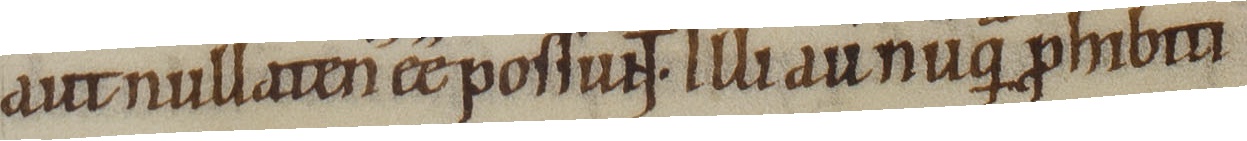 aut nullaten ee possunt. Illi au nuq̃ ꝓhibiti